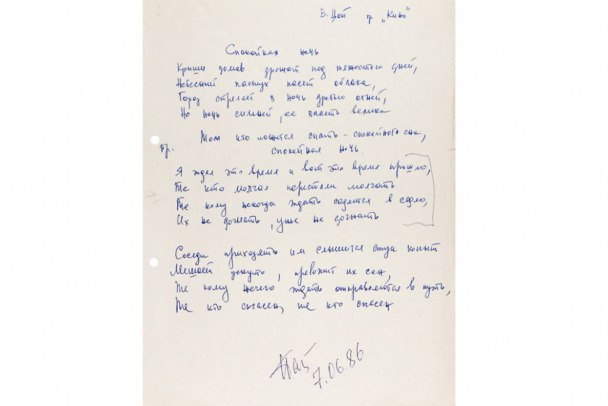 В. Цой гр. „Кино"
Спокойная ночь
Крыши домов дрожат под тяжестью дней,
Небесный пастух пасёт облака,
Город стреляет в ночь дробью огней,
Но ночь сильней, её власть велика
Тем кто ложится спать - спокойного сна,
пр.
спокойная ночь
Я ждал это время и вот это время пришло,
Те кто молчал перестали молчать
Те кому нечего ждать садятся в седло,
Их не догнать, уже не догнать
Соседи приходят им слышится стук копыт
Мешает уснуть, тревожит их сон,
Те кому нечего ждать отправляются в путь,
Те кто спасен, те кто спасен
Цой
7.06.86